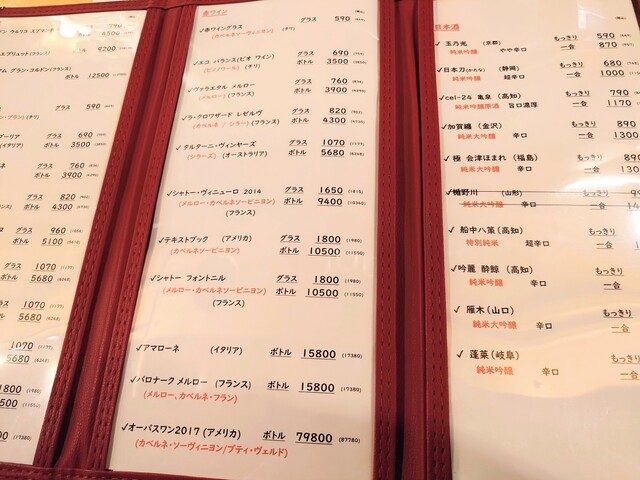 ドン ウルリコ スプマ
4500
スプリュット(フランス)
ボトル 9200
アム グラン・コルドン(フランス)
ボトル 12500
グラス 590
(チリ)
グラス 690
ボトル 3500
グラス 760
ボトル 3900
グラス 820
ボトル 4300
グラス 960
ボトル 5100
グラス 1070 (1177)
ボトル 5680 (6248)
1070 (1177)
5680 (6248)
1070 (1177)
5680 (6248)
1800 (1980)
(17380)
赤ワイン
✓赤ワイングラス グラス 590
(カベルネソーヴィニヨン) (チリ)
✓エコ バランス(ビオ ワイン) グラス 690
(ピノノワール) (チリ) ボトル 3500
✓ヴァラエタル メルロー グラス 760
(メルロー) (フランス) ボトル 3900
✓ラ・クロワザード レゼルヴ グラス 820
(カベルネ / シラー) (フランス) ボトル 4300
✓タルターニ・ヴィンヤーズ グラス 1070 (1177)
(シラーズ) (オーストラリア) ボトル 5680 (6248)
✓シャトー・ヴィニューロ 2014 グラス 1650 (1815)
(メルロー・カベルネソービニヨン) ボトル 9400 (10340)
(フランス)
✓テキストブック (アメリカ) グラス 1800 (1980)
(カベルネソービニヨン) ボトル 10500 (11550)
✓シャトー フォントニル グラス 1800 (1980)
(メルロー・カベルネソービニヨン) ボトル 10500 (11550)
(フランス)
✓アマローネ (イタリア) ボトル 15800 (17380)
✓バロナーク メルロー (フランス) ボトル 15800 (17380)
(メルロー、カベルネ・フラン)
✓オーパスワン2017 (アメリカ) ボトル 79800 (87780)
(カベルネ・ソーヴィニヨン/プティ・ヴェルド)
日本酒
✓ 玉乃光 (京都) もっきり 590
純米吟醸 やや辛口 一合 870
✓日本刀(かたな) (静岡) もっきり 680
純米吟醸 超辛口 一合 1000
✓cel-24 亀泉 (高知) もっきり 790
純米吟醸原酒 旨口濃厚 一合 1170
✓加賀纏 (金沢) もっきり 890
純米大吟醸 辛口 一合 1300
✓ 極 会津ほまれ (福島) もっきり 890
純米大吟醸 辛口 一合
✓楯野川 (山形) もっきり
純米大吟醸 辛口 一合
✓ 船中八策(高知) もっきり
特別純米 超辛口 一合
✓吟麗 酔鯨 (高知) もっきり
純米吟醸 辛口 一合
✓ 雁木(山口) もっきり
純米大吟醸 辛口 一合
✓ 蓬莱(岐阜) もっきり
純米吟醸 辛口 一合